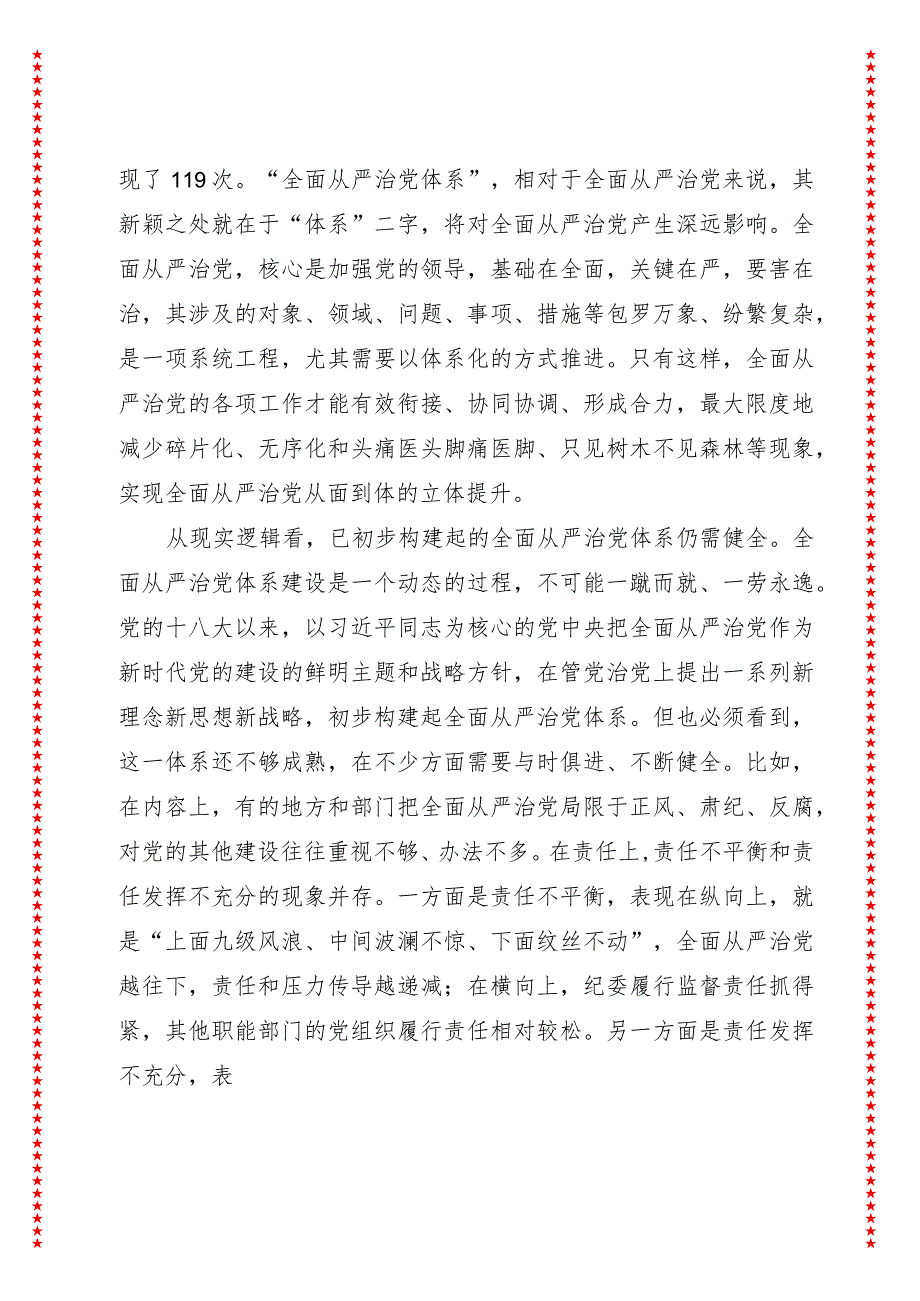 现了 119 次。“全面从严治党体系”，相对于全面从严治党来说，其
新颖之处就在于“体系”二字，将对全面从严治党产生深远影响。全
面从严治党，核心是加强党的领导，基础在全面，关键在严，要害在
治，其涉及的对象、领域、问题、事项、措施等包罗万象、纷繁复杂，
是一项系统工程，尤其需要以体系化的方式推进。只有这样，全面从
严治党的各项工作才能有效衔接、协同协调、形成合力，最大限度地
减少碎片化、无序化和头痛医头脚痛医脚、只见树木不见森林等现象，
实现全面从严治党从面到体的立体提升。
从现实逻辑看，已初步构建起的全面从严治党体系仍需健全。全
面从严治党体系建设是一个动态的过程，不可能一蹴而就、一劳永逸。
党的十八大以来，以习近平同志为核心的党中央把全面从严治党作为
新时代党的建设的鲜明主题和战略方针，在管党治党上提出一系列新
理念新思想新战略，初步构建起全面从严治党体系。但也必须看到，
这一体系还不够成熟，在不少方面需要与时俱进、不断健全。比如，
在内容上，有的地方和部门把全面从严治党局限于正风、肃纪、反腐，
对党的其他建设往往重视不够、办法不多。在责任上,责任不平衡和责
任发挥不充分的现象并存。一方面是责任不平衡，表现在纵向上，就
是“上面九级风浪、中间波澜不惊、下面纹丝不动”，全面从严治党
越往下，责任和压力传导越递减；在横向上，纪委履行监督责任抓得
紧，其他职能部门的党组织履行责任相对较松。另一方面是责任发挥
不充分，表